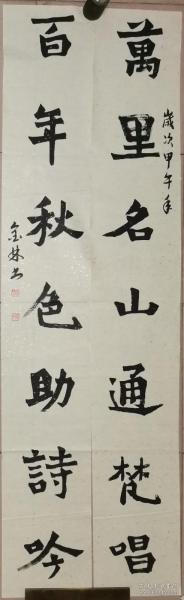 萬里名山通梵唱
歲次甲午年
百年秋色助詩吟
金林书